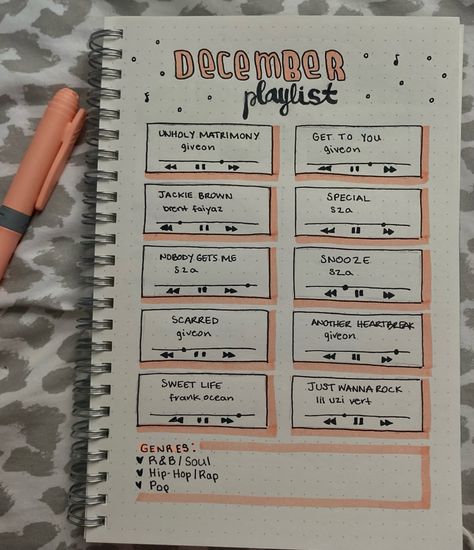 DECEMBER
playlist
UNHOLY MATRIMONY
giveon
GET TO YOU
giveon
JACKIE BROWN
brent faiyaz
SPECIAL
sza
NOBODY GETS ME
sza
SNOOZE
sza
SCARRED
giveon
ANOTHER HEARTBREAK
giveon
SWEET LIFE
frank ocean
JUST WANNA ROCK
lil uzi vert
GENRES:
R&B/Soul
Hip-Hop/Rap
Pop